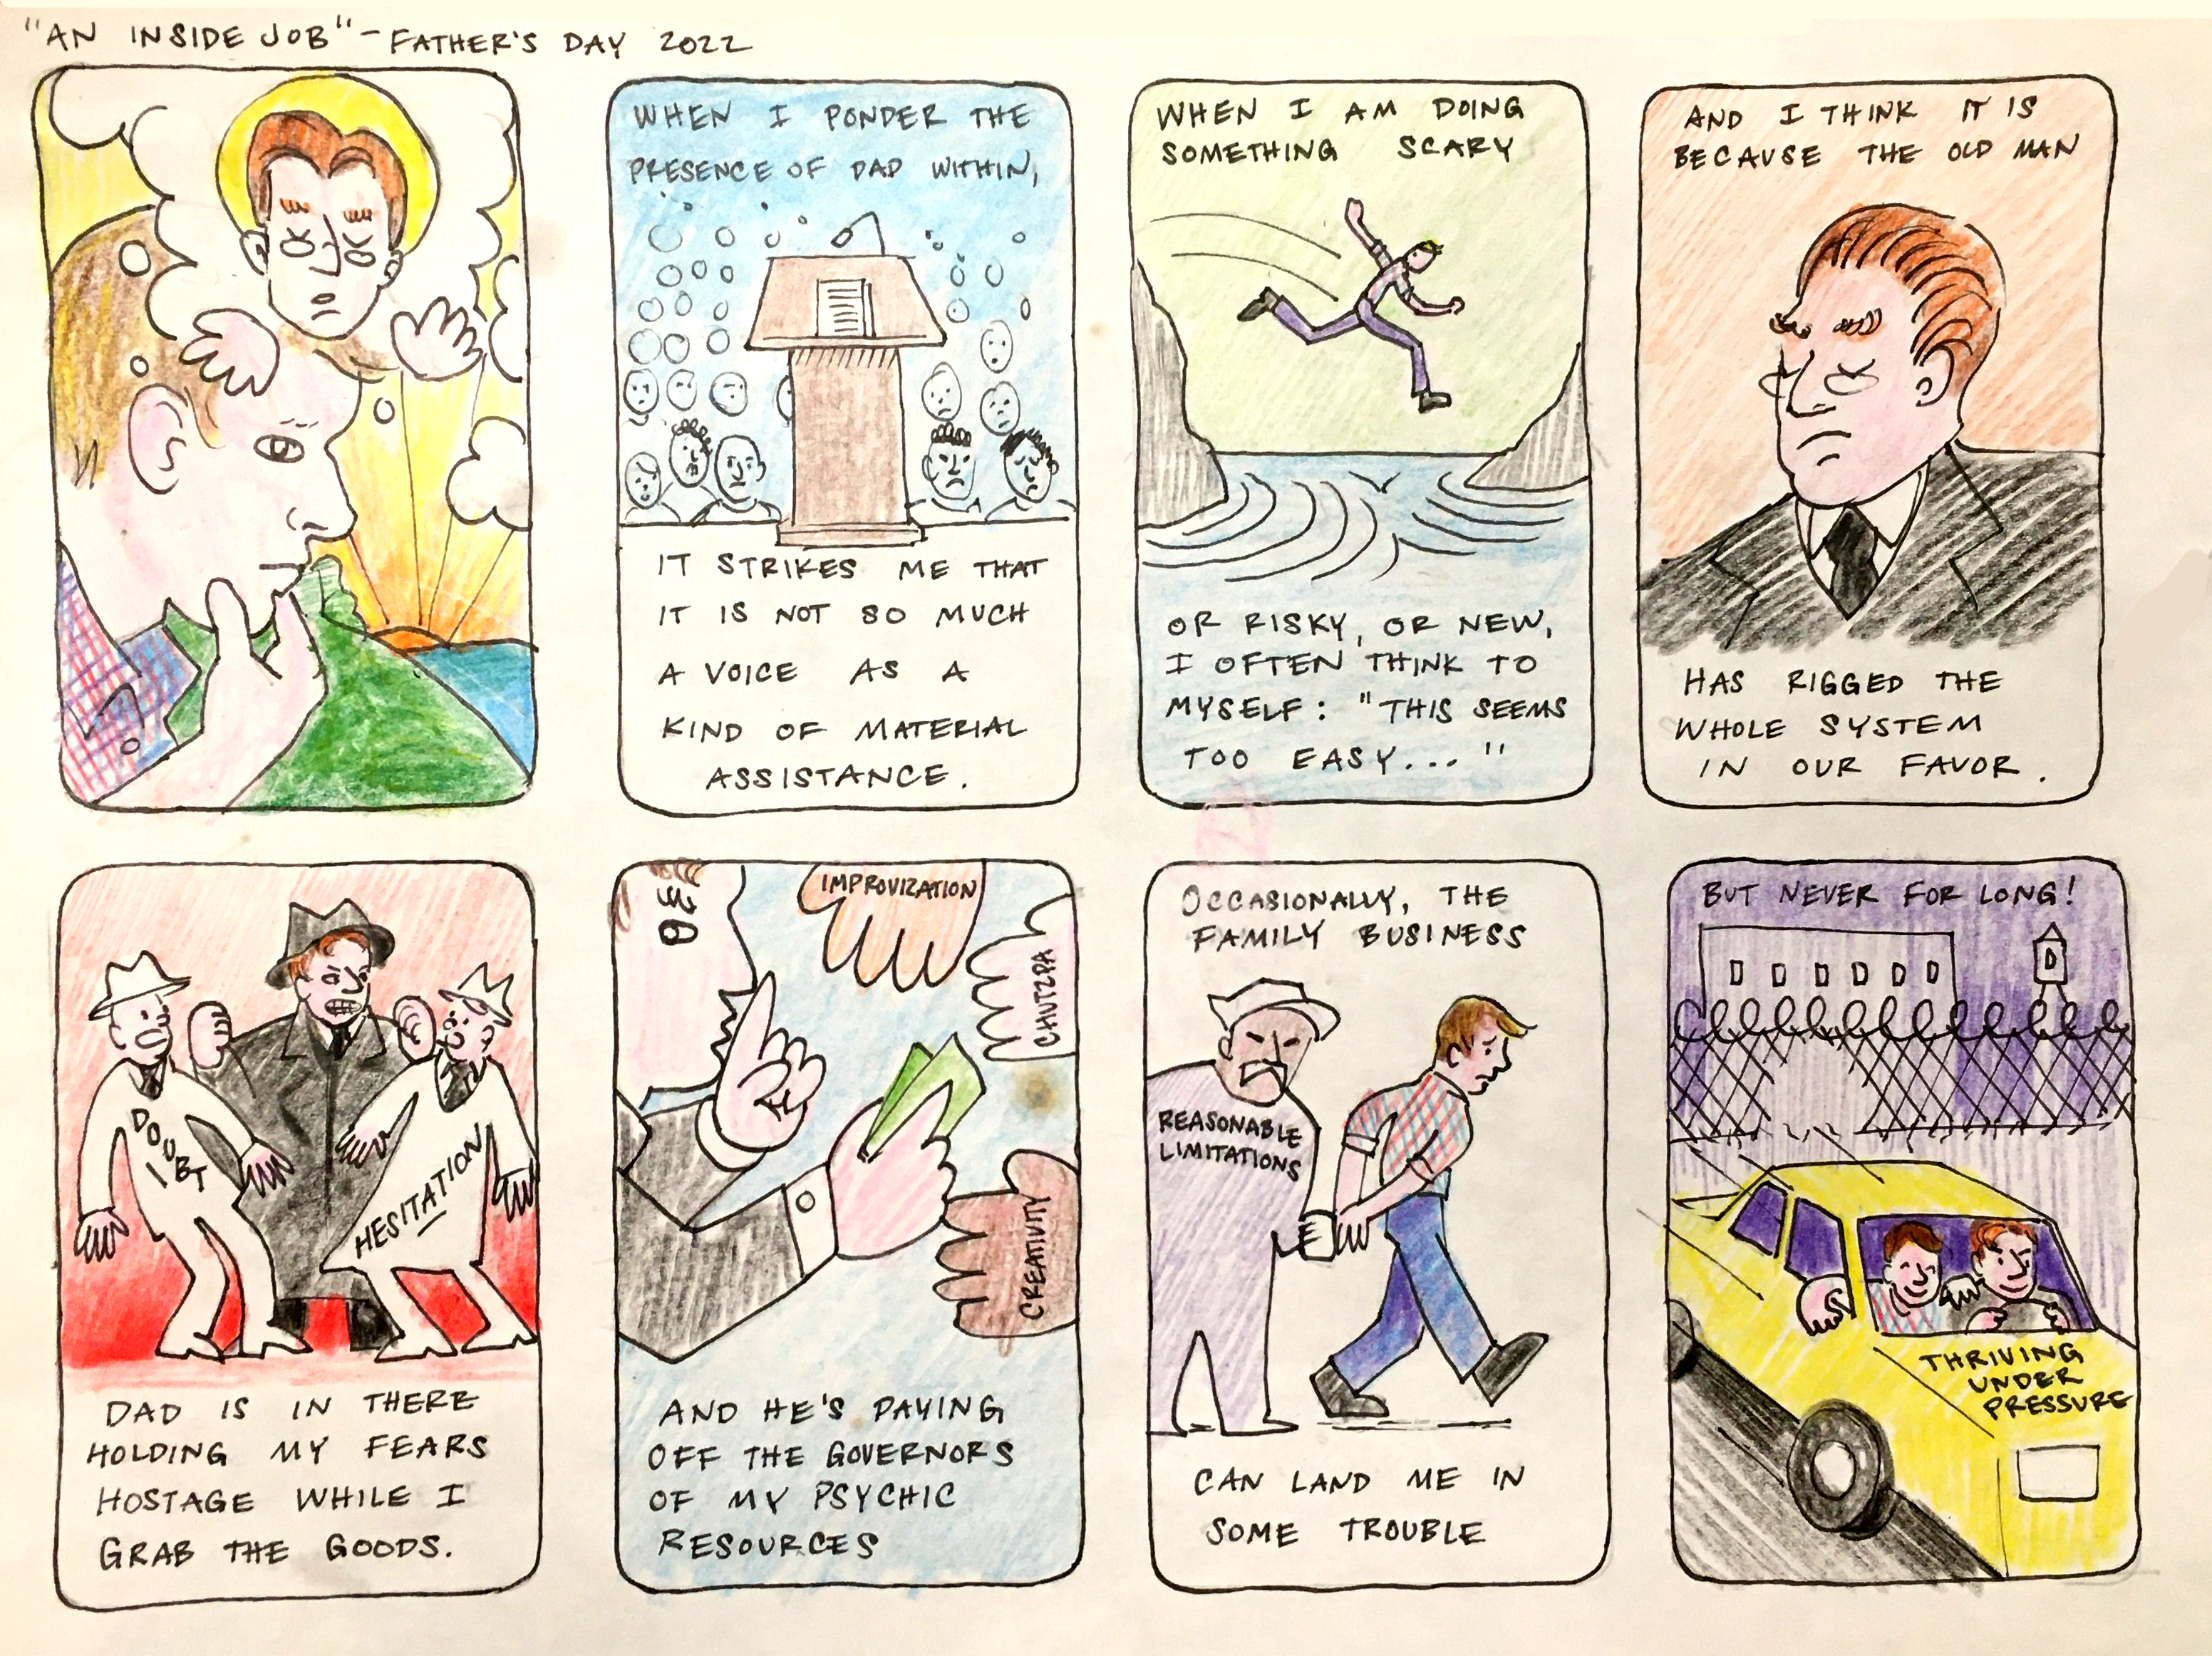 "AN INSIDE JOB" - FATHER'S DAY 2022
WHEN I PONDER THE
PRESENCE OF DAD WITHIN,
IT STRIKES ME THAT
IT IS NOT SO MUCH
A VOICE AS A
KIND OF MATERIAL
ASSISTANCE.
WHEN I AM DOING
SOMETHING SCARY
OR RISKY, OR NEW,
I OFTEN THINK TO
MYSELF: "THIS SEEMS
TOO EASY..."
AND I THINK IT IS
BECAUSE THE OLD MAN
HAS RIGGED THE
WHOLE SYSTEM
IN OUR FAVOR.
DOUBT
HESITATION
DAD IS IN THERE
HOLDING MY FEARS
HOSTAGE WHILE I
GRAB THE GOODS.
IMPROVIZATION
CHUTZPA
CREATIVITY
AND HE'S PAYING
OFF THE GOVERNORS
OF MY PSYCHIC
RESOURCES
OCCASIONALLY, THE
FAMILY BUSINESS
REASONABLE
LIMITATIONS
CAN LAND ME IN
SOME TROUBLE
BUT NEVER FOR LONG!
THRIVING
UNDER
PRESSURE